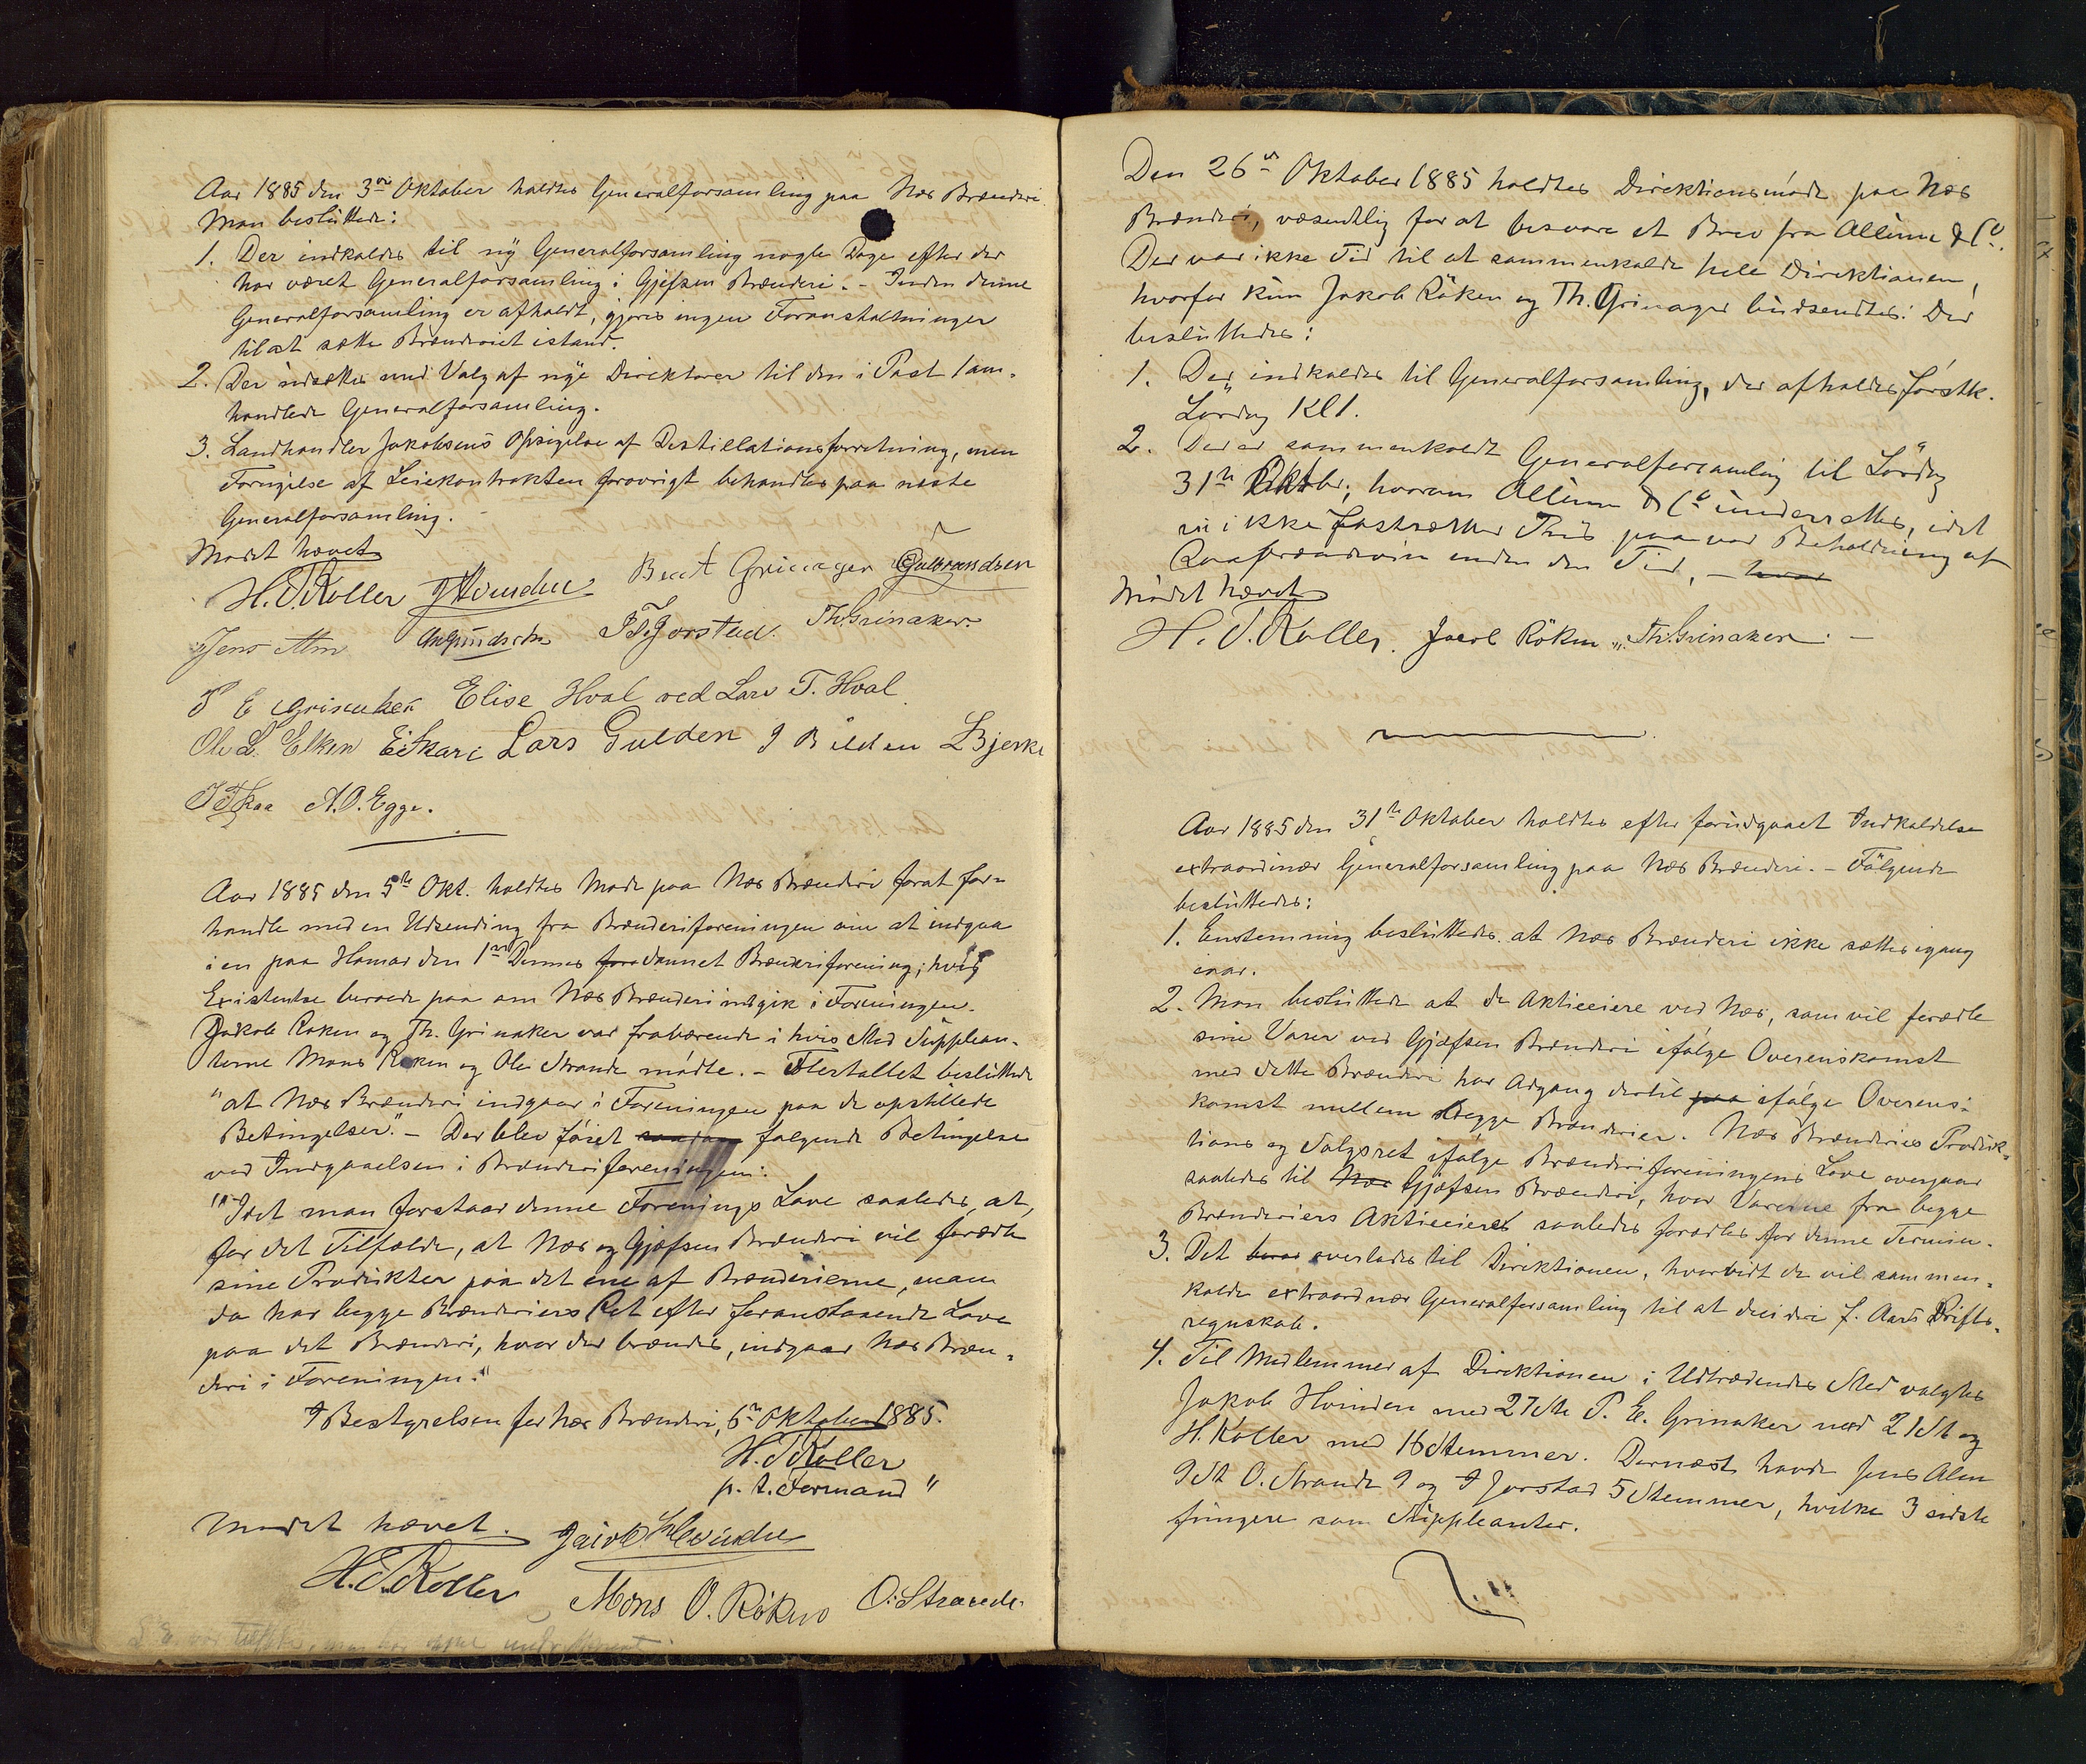 Aar 1885 den 3die Oktober holdtes Generalforsamling paa Næs Brænderi.
Man besluttede:
1. Der indkaldes til ny Generalforsamling nogle Dage efter der
har været Generalforsamling i Gjefsen Brænderi. - Inden denne
Generalforsamling er afholdt, gjøres ingen Foranstaltninger
til at sætte Brænderiet istand.
2. Der udsættes med Valg af nye Direktører til den i Post 1 om-
handlede Generalforsamling.
3. Landhandler Jakobsens Opsigelse af Destillationsforretning, men
Fornyelse af Leiekontrakten forøvrigt behandles paa neste
Generalforsamling.
Mødet hævet
H. T. Koller JHvinden Bent Grinager Gulbrandsen
Jens Alm Th. Grinaker
P E Grinaker Elise Hval ved Lars T. Hval
Ole L. Elken E Skare Lars Gulden J Bilden L Bjerke
A. O. Egge.
Aar 1885 den 5te Okt. holdtes Møde paa Næs Brænderi forat for-
handle med en Udsending fra Brænderiforeningen om at indgaa
i en paa Hamar den 1ste Dennes fore dannet Brænderiforening, hvis
Existentse beroede paa om Næs Brænderi indgik i Foreningen.
Jakob Røken og Th. Grinaker var fraværende i hvis Sted Supplean-
terne Mons Røken og Ole Strande mødte. - Flertallet besluttede
"at Næs Brænderi indgaar i Foreningen paa de opstillede
Betingelser". - Der blev føiet saadan følgende Betingelse
ved Indgaaelsen i Brænderiforeningen:
"Idet man forstaar denne Forenings Love saaledes, at,
for det Tilfælde, at Næs og Gjøfsen Brænderi vil forædle
sine Produkter paa det ene af Brænderierne, man
da har begge Brænderiers Ret efter foranstaaende Love
paa det Brænderi, hvor der brændes, indgaar Næs Bræn-
deri i Foreningen."
I Bestyrelsen for Næs Brænderi, 6te Oktober 1885.
H. T Koller
p. t. Formand "
Mødet hævet. Jacob Hvinden
H. T. Koller Mons O. Røken O. Strande
Den 26de Oktober 1885 holdtes Direktionsmøde paa Næs
Brænderi, væsentlig for at besvare et Brev fra Allum & Co.
Der var ikke Tid til at sammenkalde hele Direktionen,
hvorfor kun Jakob Røken og Th. Grinager budsendtes. Der
besluttedes:
1. Der indkaldes til Generalforsamling, der afholdes førstk.
Lørdag Kl 1.
2. Der er sammenkaldt Generalforsamling til Lørdag
31te Oktbr., hvorom Allum & Co underrettes, idet
vi ikke fastsætter Pris paa vor Beholdning af
Raabrændevin inden den Tid, - hvor
Mødet hævet
H. T. Koller. Jacob Röken Th. Grinaker. -
Aar 1885 den 31te Oktober holdtes efter forudgaaet Indkaldelse
extraordinær Generalforsamling paa Næs Brænderi. - Følgende
besluttedes:
1. Enstemmig besluttedes at Næs Brænderi ikke sættes igang
iaar.
2. Man besluttede at de Aktieeiere ved Næs, som vil forædle
sine Varer ved Gjøfsen Brænderi ifølge Overenskomst
med dette Brænderi har Adgang dertil paa ifølge Overens-
komst mellem begge Brænderier. Næs Brænderies Produk-
tions og Salgsret ifølge Brænderiforeningens Love overgaar
saaledes til Næs Gjøfsen Brænderi, hvor Varerne fra begge
Brænderiers Aktieeiere saaledes forædles for denne Termin.
3. Det beror overlades til Direktionen, hvorvidt de vil sammen-
kalde extraordnær Generalforsamling til at decidere f. Aars Drifts-
regnskab.
4. Til Medlemmer af Direktionen i Udtrædendes Sted valgtes
Jakob Hvinden med 27 Ste P. E. Grinaker med 21 St og
H. Koller med 16 Stemmer. Dernæst havde Jens Alm
9 St O. Strande 9 og I Jorstad 5 Stemmer, hvilke 3 sidste
fungere som Suppleanter.